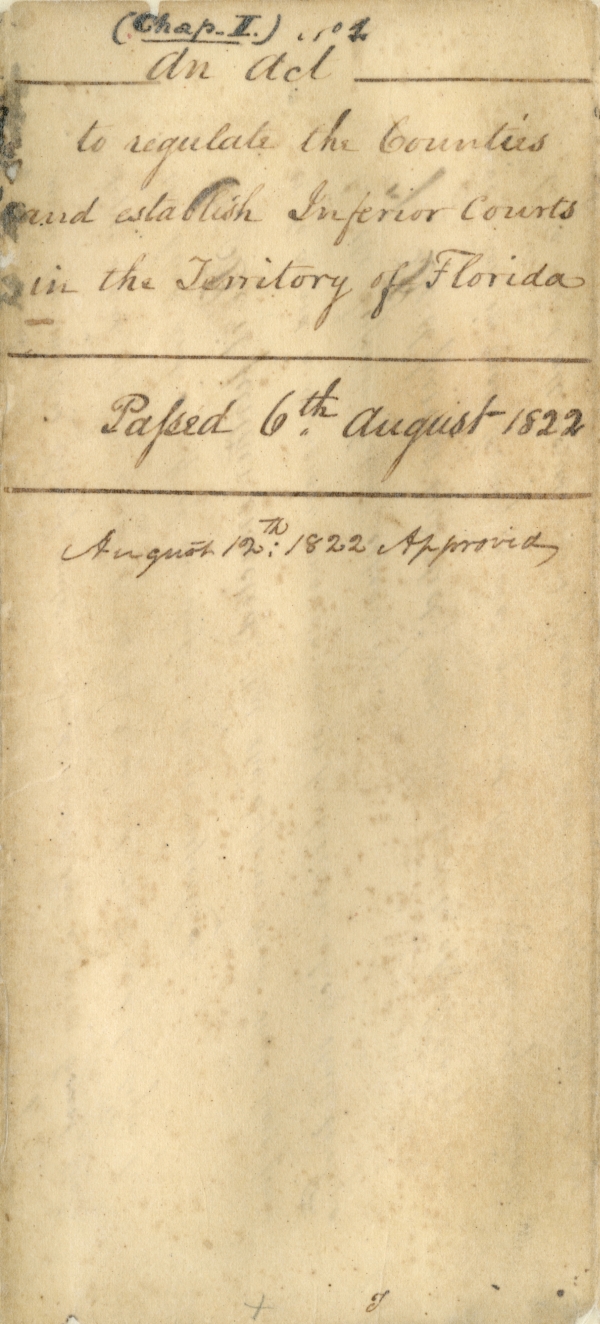 (Chap. II.) No 2
An Act
to regulate the Counties
and establish Inferior Courts
in the Territory of Florida
Paſsed 6th August 1822
August 12th: 1822 Approved